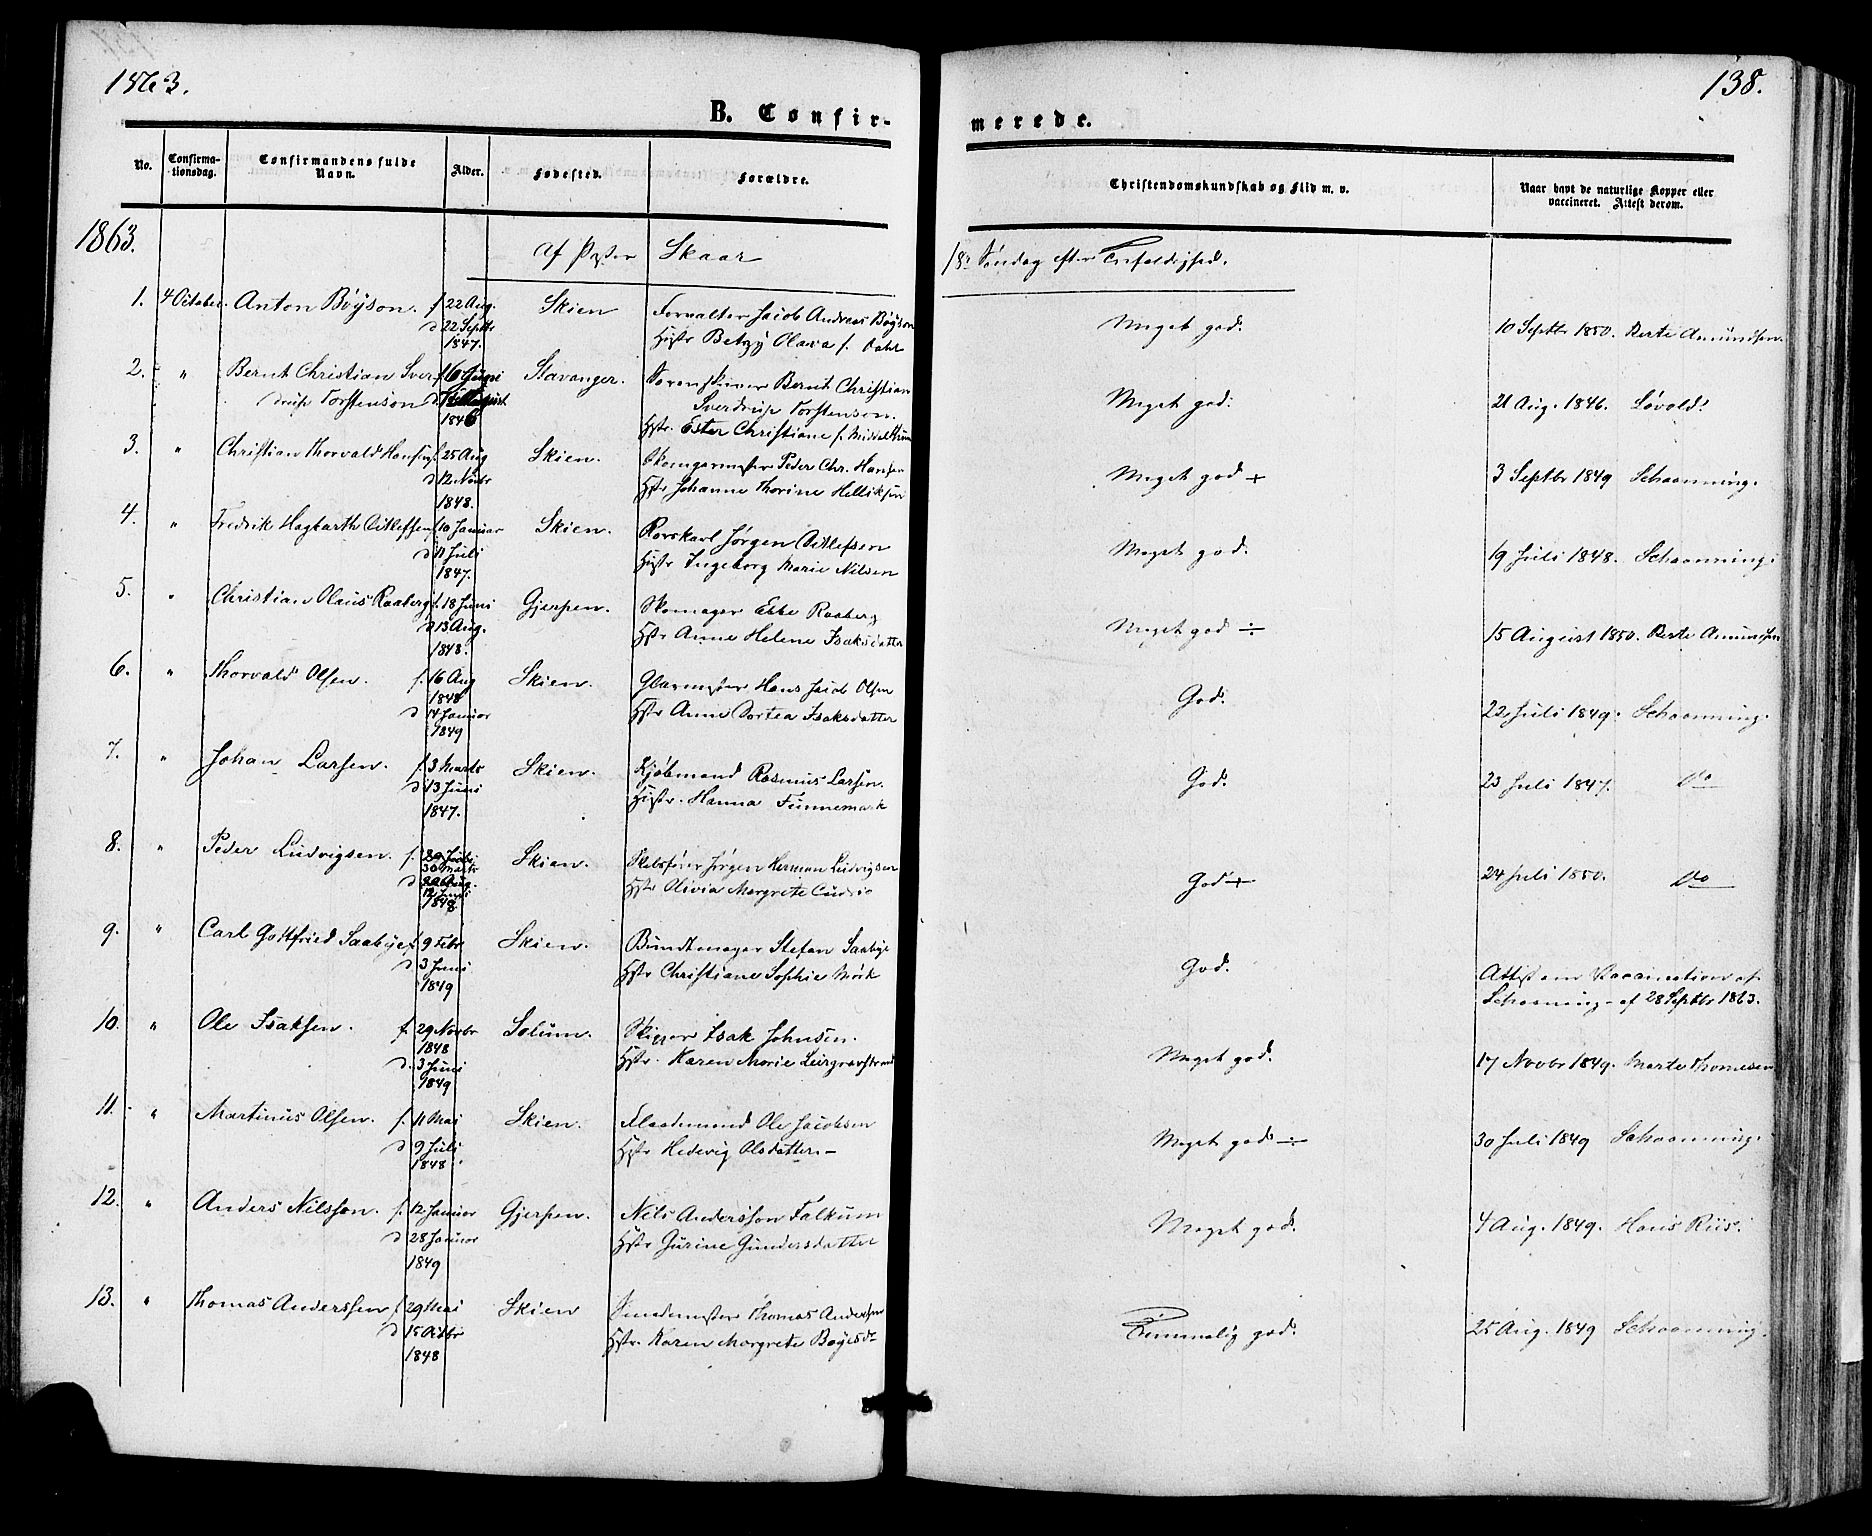 1863.
138.
B. Confir-
merede.
No.
Confirma-
tionsdag.
Confirmandens fulde
Navn.
Alder.
Fødested.
Forældre.
Christendomskundskab og Flid m. v.
Naar havt de naturlige Kopper eller
vaccineret. Attest derom.
1863.
af Skaar
18. Søndag efter Trefoldighed.
1. 4 October. Anton Böyson. f 22 Aug. Skien Forvalter Jacob Andreas Böyson Meget god. 10 Septbr 1850. Berte Amundsen.
d 22 Septb Hstr Betzy Olava f.
1847.
2. " Bernt Christian Sver- f 6 Stavanger. Bernt Christian Meget god: 21 Aug. 1846. Løvold.
drup Torstenson d Sverdrup Torstenson.
1846 Hstr. Ester Christiane f.
3. " Christian Thorvald Hansen f. 25 Aug Skien. Skomagermester Peder Chr. Hansen Meget god + 3 Septbr 1849 Schaanning.
d 12 Novbr Hstr Johanne Thorine Helliksen
1848.
4. " Fredrik Hagbarth Ditlefsen f 10 Januar Skien. Rorskarl Jørgen Ditlefsen Meget god. 19 Juli 1848. Schaanning.
d 11 Juli Hstr Ingeborg Marie Nilsen
1847.
5. " Christian Olaus Raaberg f. 18 Juni Gjerpen. Skomager Ebbe Raaberg Meget god ÷ 15 August 1850. Berte Amundsen
d 13 Aug. Hstr Anne Helene Isaksdatter
1848.
6. " Thorvald Olsen. f. 16 Aug Skien. Glarmester Hans Jacob Olsen God. 22 Juli 1849. Schaanning.
1848
d 14 Januar Hstr Anne Dortea Isaksdatter
1849
7. " Johan Larsen. f. 3 Marts Skien. Kjøbmand Rasmus Larsen. God. 23 Juli 1847. Do
d 13 Juni Hstr. Hanna Finnemark
1847.
8. " Peder Ludvigsen. f. Skien. Skibsfører Jørgen Herman Ludvigsen God + 24 Juli 1850. Do
30 Marts
d Hstr Olivia Margrete
12 Juni
1848
9. " Carl Gottfried Saabye f. 9 Febr Skien. Bundtmager Stefan Saabye God. Attest om Vaccination af
d 3 Juni Hstr Christiane Sophie Mörk Schaaning af 28 Septbr 1863.
1849
10. " Ole Isaksen. f. 29 Novbr Solum. Skipper Isak Johnsen. Meget god. 17 Novbr 1849. Marte Thomesen
1848
d. 3 Juni Hstr. Karen Marie Leirgravstrand
1849
11. " Martinus Olsen. f. 11 Mai Skien. Flaademand Ole Jacobsen Meget god ÷ 30 Juli 1849 Schaanning.
d 9 Juli Hstr Hedevig Olsdatter.-
1848
12. " Anders Nilsson. f. 12 Januar Gjerpen. Nils Andersson Falkum Meget god. 4 Aug. 1849. Hans Riis.
d 28 Januar Hstr Gurine Gundersdatter
1849
13. " Thomas Anderssen f 29 Mai Skien Smedemester Thomas Andersen Temmelig god. 25 Aug. 1849 Schaanning.
d 15 Octbr Hstr. Karen Margrete Boyesdr
1848